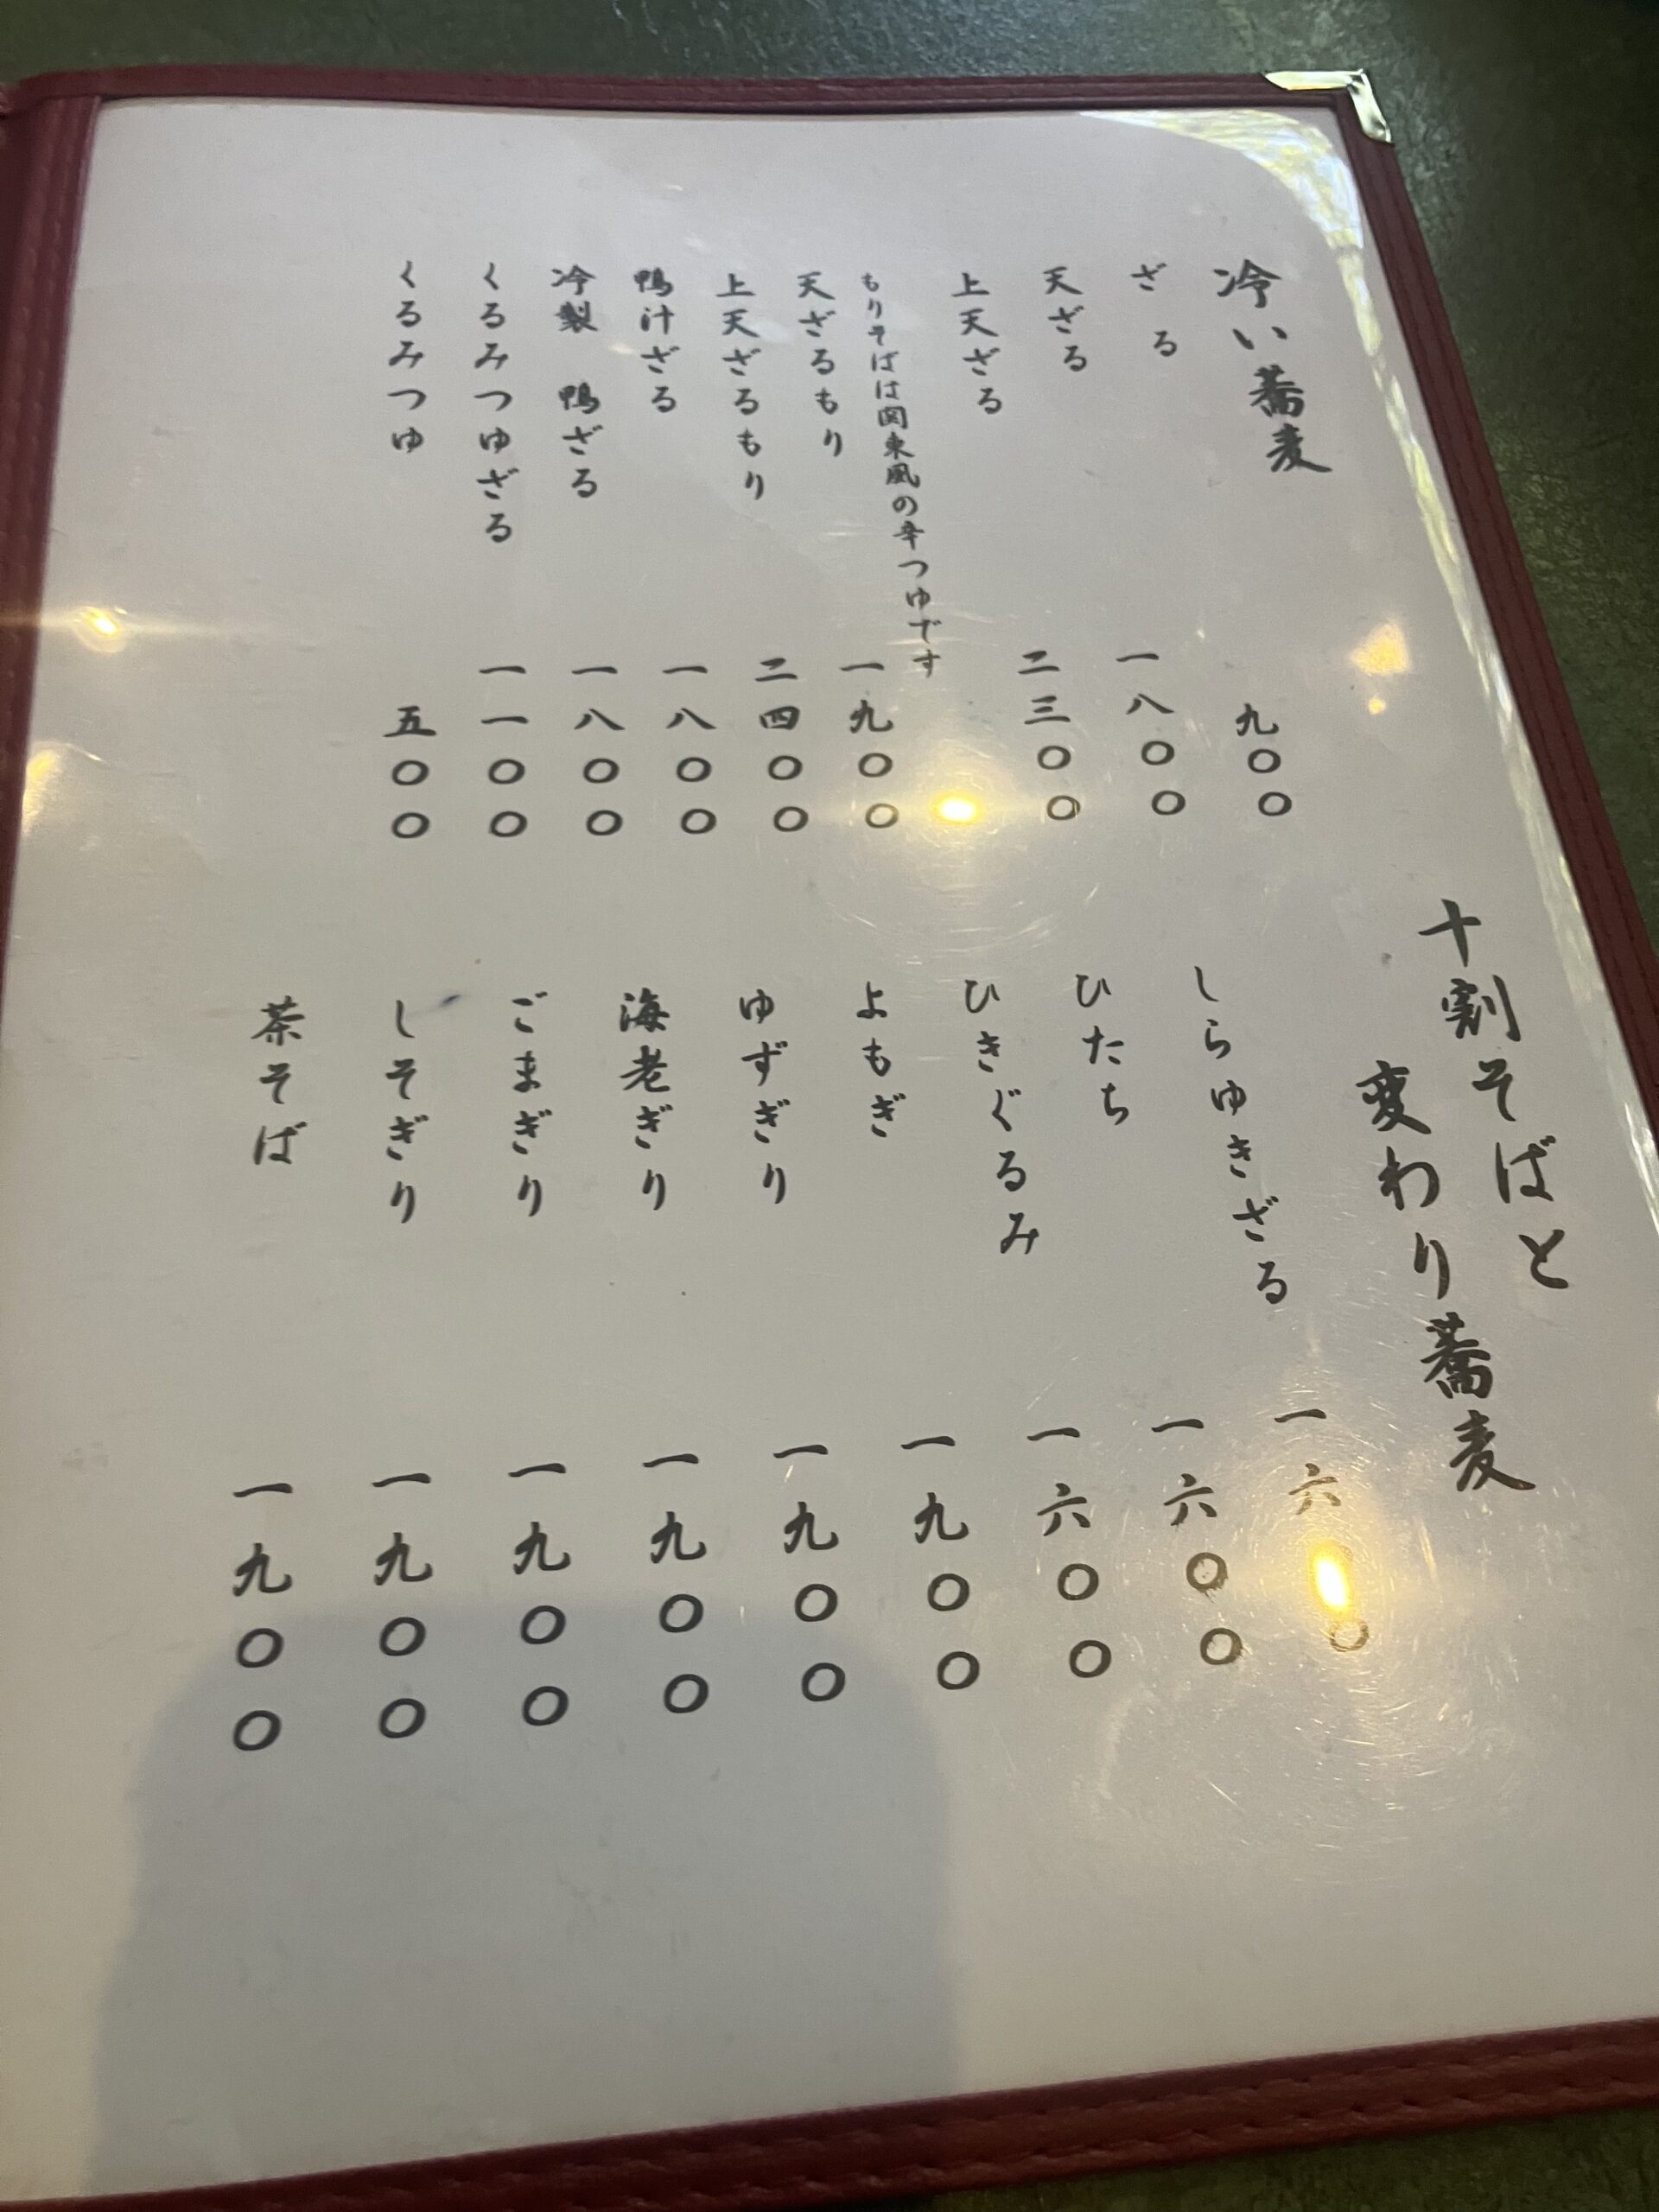 冷い蕎麦
ざる 九〇〇
天ざる 一八〇〇
上天ざる 二三〇〇
もりそばは関東風の辛つゆです
天ざるもり 一九〇〇
上天ざるもり 二四〇〇
鴨汁ざる 一八〇〇
冷製 鴨ざる 一八〇〇
くるみつゆざる 一一〇〇
くるみつゆ 五〇〇
十割そばと
変わり蕎麦
しらゆきざる 一六〇〇
ひたち 一六〇〇
ひきぐるみ 一六〇〇
よもぎ 一九〇〇
ゆずぎり 一九〇〇
海老ぎり 一九〇〇
ごまぎり 一九〇〇
しそぎり 一九〇〇
茶そば 一九〇〇